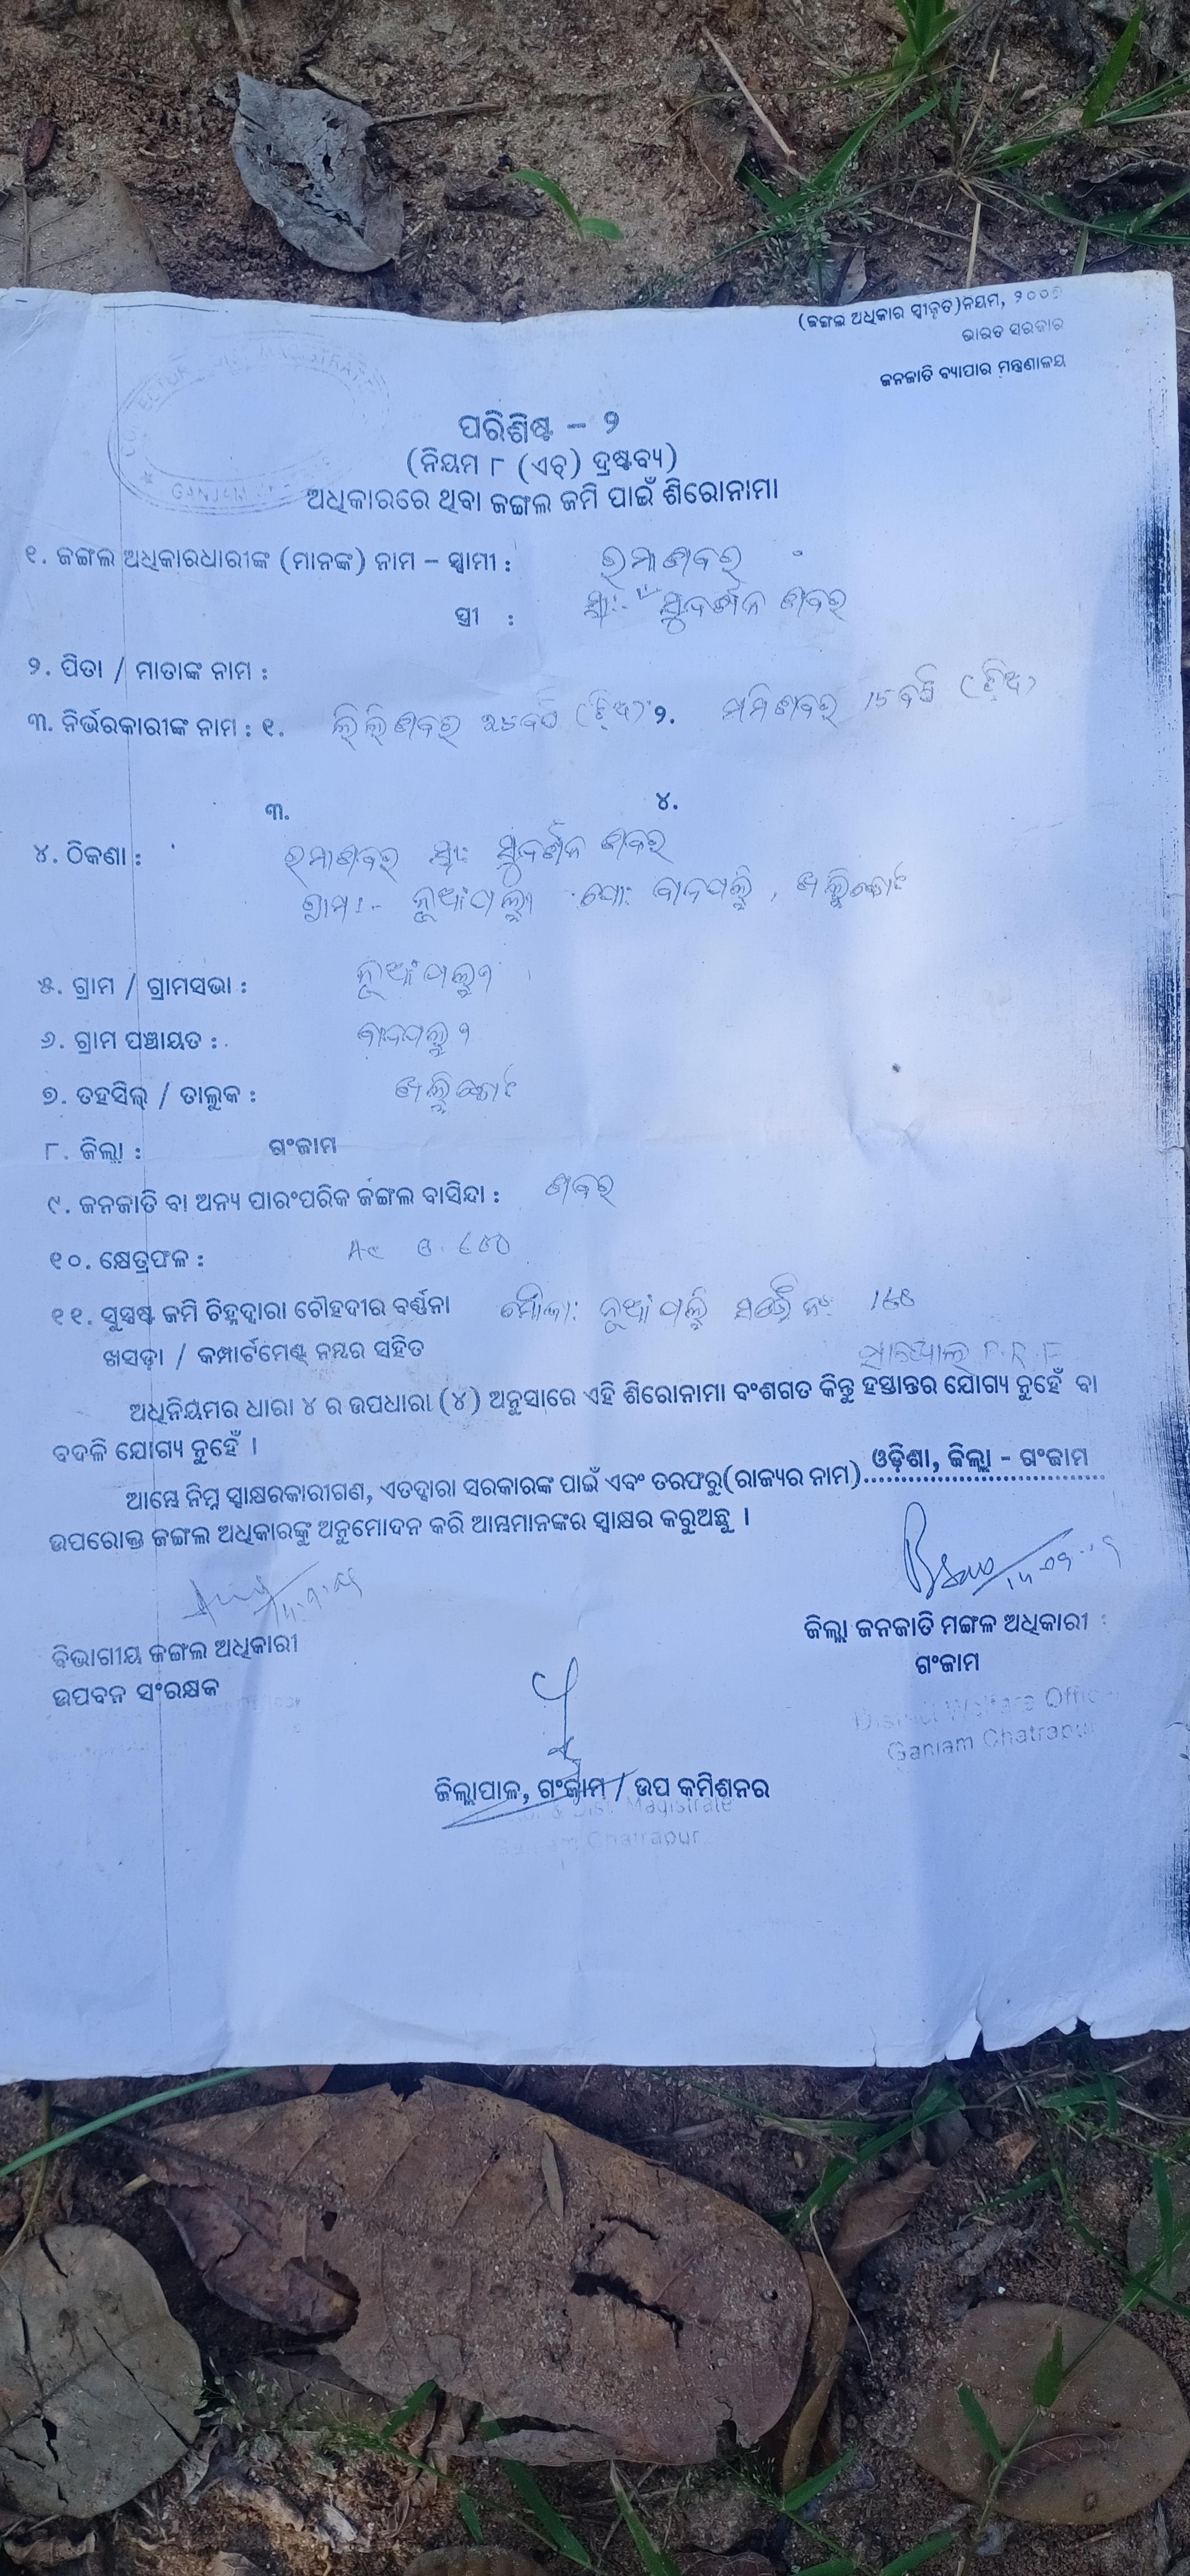 (ଜଙ୍ଗଲ ଅଧିକାର ସ୍ୱୀକୃତ)ନିୟମ, ୨୦୦୭
ଭାରତ ସରକାର
ଜନଜାତି ବ୍ୟାପାର ମନ୍ତ୍ରଣାଳୟ
ପରିଶିଷ୍ଟ – ୨
(ନିୟମ ୮ (ଏଚ୍) ଦ୍ରଷ୍ଟବ୍ୟ)
ଅଧିକାରରେ ଥିବା ଜଙ୍ଗଲ ଜମି ପାଇଁ ଶିରୋନାମା
GANJAM
୧. ଜଙ୍ଗଲ ଅଧିକାରଧାରୀଙ୍କ (ମାନଙ୍କ) ନାମ – ସ୍ୱାମୀ : ରମା ଶବର
ସ୍ତ୍ରୀ : ସ୍ୱାଃ- ସୁଦର୍ଶନ ଶବର
୨. ପିତା / ମାତାଙ୍କ ନାମ :
୩. ନିର୍ଭରକାରୀଙ୍କ ନାମ : ୧. ଲିଲି ଶବର (ଝିଅ) ୨. ମମି ଶବର 15 ବର୍ଷ (ଝିଅ)
୩. ୪.
୪. ଠିକଣା : ରମା ଶବର ସ୍ୱାଃ ସୁଦର୍ଶନ ଶବର
ଗ୍ରାମ :- ନୂଆଁପଲ୍ଲୀ ପୋ: ବାନପଲ୍ଲି, ଖଲ୍ଲିକୋଟ
୫. ଗ୍ରାମ / ଗ୍ରାମସଭା : ନୂଆଁପଲ୍ଲୀ
୬. ଗ୍ରାମ ପଞ୍ଚାୟତ : ବାନପଲ୍ଲୀ
୭. ତହସିଲ୍ / ତାଲୁକ : ଖଲ୍ଲିକୋଟ
୮. ଜିଲ୍ଲା : ଗଂଜାମ
୯. ଜନଜାତି ବା ଅନ୍ୟ ପାରଂପରିକ ଜଙ୍ଗଲ ବାସିନ୍ଦା : ଶବର
୧୦. କ୍ଷେତ୍ରଫଳ : Ac
୧୧. ସୁସ୍ପଷ୍ଟ ଜମି ଚିହ୍ନଦ୍ୱାରା ଚୌହଦୀର ବର୍ଣ୍ଣନା ମୌଜା: ନୂଆଁପଲ୍ଲି
ଖସଡ଼ା / କମ୍ପାର୍ଟମେଣ୍ଟ ନମ୍ବର ସହିତ P.R.F
ଅଧିନିୟମର ଧାରା ୪ ର ଉପଧାରା (୪) ଅନୁସାରେ ଏହି ଶିରୋନାମା ବଂଶଗତ କିନ୍ତୁ ହସ୍ତାନ୍ତର ଯୋଗ୍ୟ ନୁହେଁ ବା
ବଦଳି ଯୋଗ୍ୟ ନୁହେଁ ।
ଆମ୍ଭେ ନିମ୍ନ ସ୍ୱାକ୍ଷରକାରୀଗଣ, ଏତଦ୍ୱାରା ସରକାରଙ୍କ ପାଇଁ ଏବଂ ତରଫରୁ(ରାଜ୍ୟର ନାମ)..ଓଡ଼ିଶା, ଜିଲ୍ଲା - ଗଂଜାମ
ଉପରୋକ୍ତ ଜଙ୍ଗଲ ଅଧିକାରଙ୍କୁ ଅନୁମୋଦନ କରି ଆମ୍ଭମାନଙ୍କର ସ୍ୱାକ୍ଷର କରୁଅଛୁ ।
ବିଭାଗୀୟ ଜଙ୍ଗଲ ଅଧିକାରୀ
ଉପବନ ସଂରକ୍ଷକ
ଜିଲ୍ଲା ଜନଜାତି ମଙ୍ଗଳ ଅଧିକାରୀ :
ଗଂଜାମ
District Welfare Office
Ganjam Chatrapur
ଜିଲ୍ଲାପାଳ, ଗଂଜାମ / ଉପ କମିଶନର
& Dist. Magistrate
Chatrapur